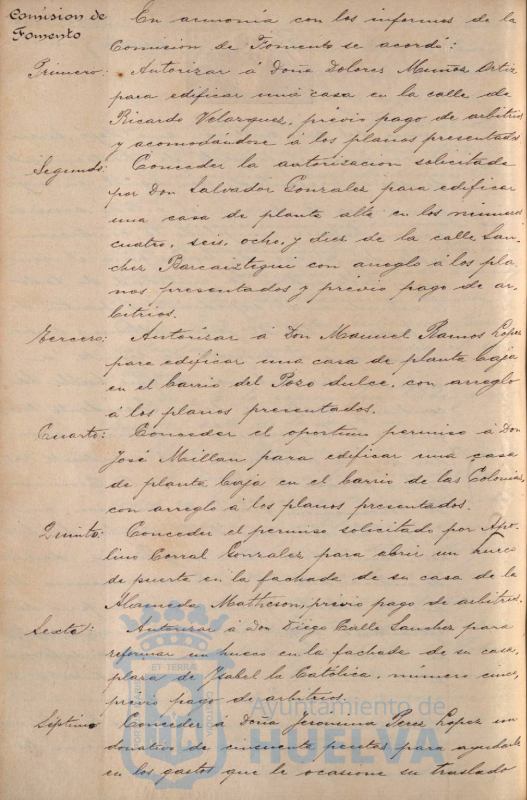 Comision de Fomento
En armonía con los informes de la
Comision de Fomento se acordó:
Primero: Autorizar á Doña Dolores Muñoz Ortiz
para edificar una casa en la calle de
Ricardo Velazquez, prévio pago de arbitrios
y acomodándose á los planos presentados
Segundo: Conceder la autorizacion solicitada
por Don Salvador Gonzalez para edificar
una casa de planta alta en los números
cuatro, seis, ocho, y diez de la calle San-
chez Barcaiztegui con arreglo á los pla-
nos presentados y previo pago de ar-
bitrios.
Tercero: Autorizar á Don Manuel Ramos Lopez
para edificar una casa de planta baja
en el barrio del Pozo dulce, con arreglo
á los planos presentados.
Cuarto: Conceder el oportuno permiso á Don
José Millan para edificar una casa
de planta baja en el barrio de las Colonias,
con arreglo á los planos presentados.
Quinto: Conceder el permiso solicitado por Apo-
lino Corral Gonzalez, para abrir un hueco
de puerta en la fachada de su casa de la
Alameda Matheson, previo pago de arbitrios.
Sexto: Autorizar á Don Diego Calle Sanchez para
reformar un hueco en la fachada de su casa,
plaza de Ysabel la Católica, número cinco,
previo pago de arbitrios.
Séptimo: Conceder á Doña Jeronima Perez Lopez un
donativo de cincuenta pesetas para ayudarle
en los gastos que le ocasione su traslado
ET TERRÆ
Ayuntamiento de
HUELVA